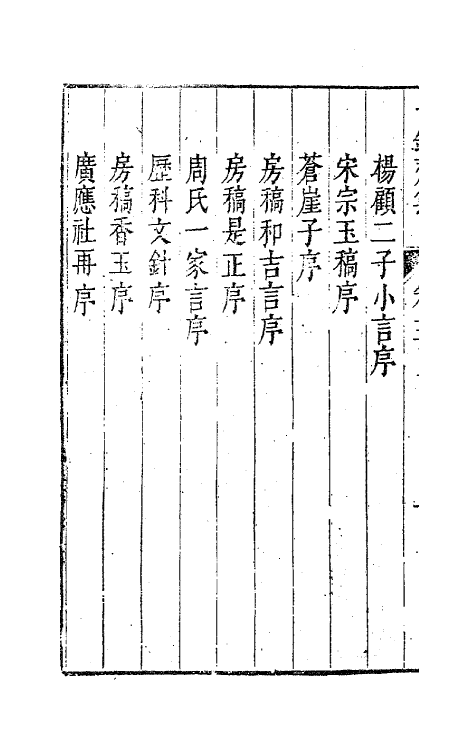 楊顧二子小言序
宋宗玉稿序
蒼崖子序
房稿和吉言序
房稿是正序
周氏一家言序
歷科文針序
房稿香玉序
廣應社再序